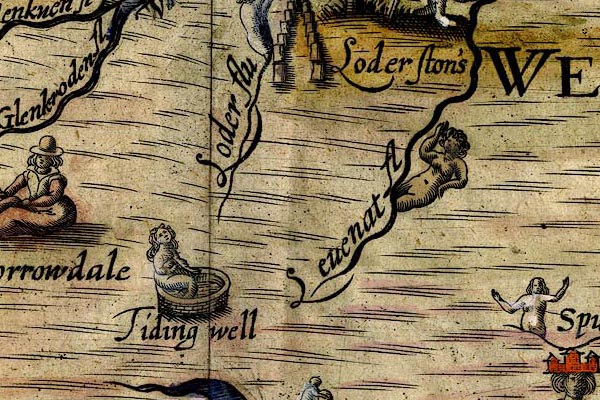 lenkuen fl
Glenkroden fl
Loder flu
Loder ſton's
WE
Leuenat fl
orrowdale
Tiding well
Spu